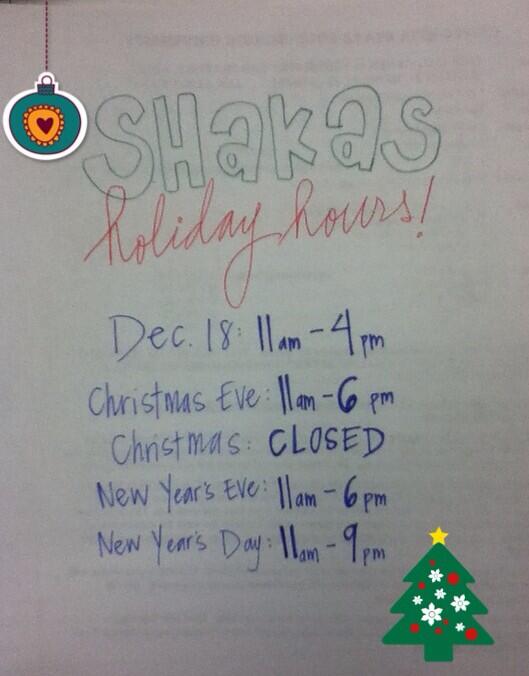 SHaKas
holiday hours!
Dec. 18: 11am - 4pm
Christmas Eve: 11am - 6 pm
Christmas: CLOSED
New Year's Eve: 11am - 6pm
New Year's Day: 11am - 9pm